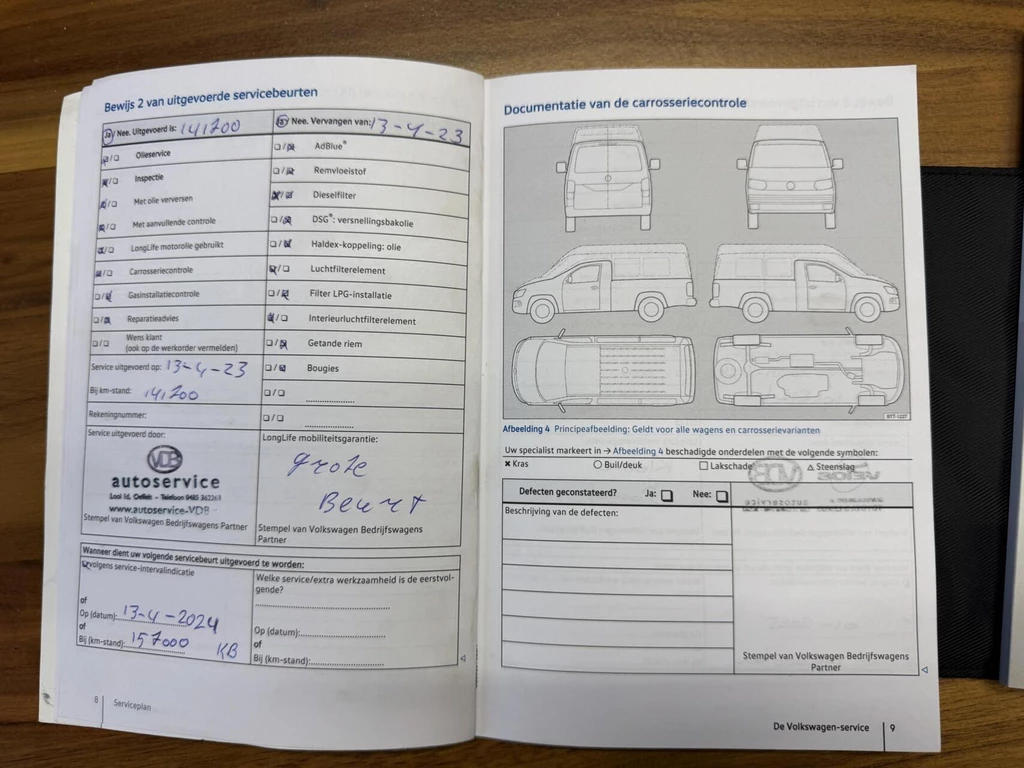 Bewijs 2 van uitgevoerde servicebeurten
Ja / Nee. Uitgevoerd is: 141700
Ja / Nee. Vervangen van: 13-4-23
Olieservice
AdBlue®
Inspectie
Remvloeistof
Met olie verversen
Dieselfilter
Met aanvullende controle
DSG®: versnellingsbakolie
LongLife motorolie gebruikt
Haldex-koppeling: olie
Carrosseriecontrole
Luchtfilterelement
Gasinstallatiecontrole
Filter LPG-installatie
Reparatieadvies
Interieurluchtfilterelement
Wens klant
(ook op de werkorder vermelden)
Getande riem
Service uitgevoerd op: 13-4-23
Bougies
Bij km-stand: 141700
Rekeningnummer:
Service uitgevoerd door:
VDB
autoservice
www.autoservice-VDB
Stempel van Volkswagen Bedrijfswagens Partner
LongLife mobiliteitsgarantie:
grote
Beurt
Stempel van Volkswagen Bedrijfswagens
Partner
Wanneer dient uw volgende servicebeurt uitgevoerd te worden:
volgens service-intervalindicatie
of
Op (datum): 13-4-2024
of
Bij (km-stand): 157000 KB
Welke service/extra werkzaamheid is de eerstvol-
gende?
Op (datum):
of
Bij (km-stand):
8 Serviceplan
Documentatie van de carrosseriecontrole
BTT-1227
Afbeelding 4 Principeafbeelding: Geldt voor alle wagens en carrosserievarianten
Uw specialist markeert in → Afbeelding 4 beschadigde onderdelen met de volgende symbolen:
× Kras ○ Buil/deuk □ Lakschade △ Steenslag
Defecten geconstateerd? Ja: □ Nee: □
Beschrijving van de defecten:
Stempel van Volkswagen Bedrijfswagens
Partner
De Volkswagen-service 9